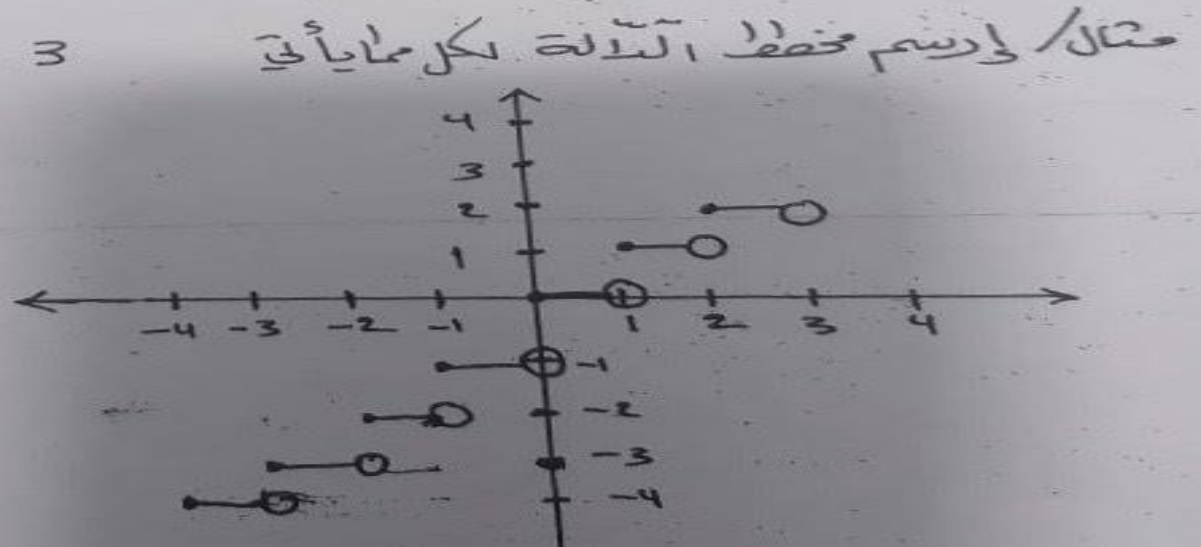 مثال/ إرسم مخطط الدّالة لكل مما يأتي 3
4
3
2
1
-4 -3 -2 -1 1 2 3 4
-1
-2
-3
-4